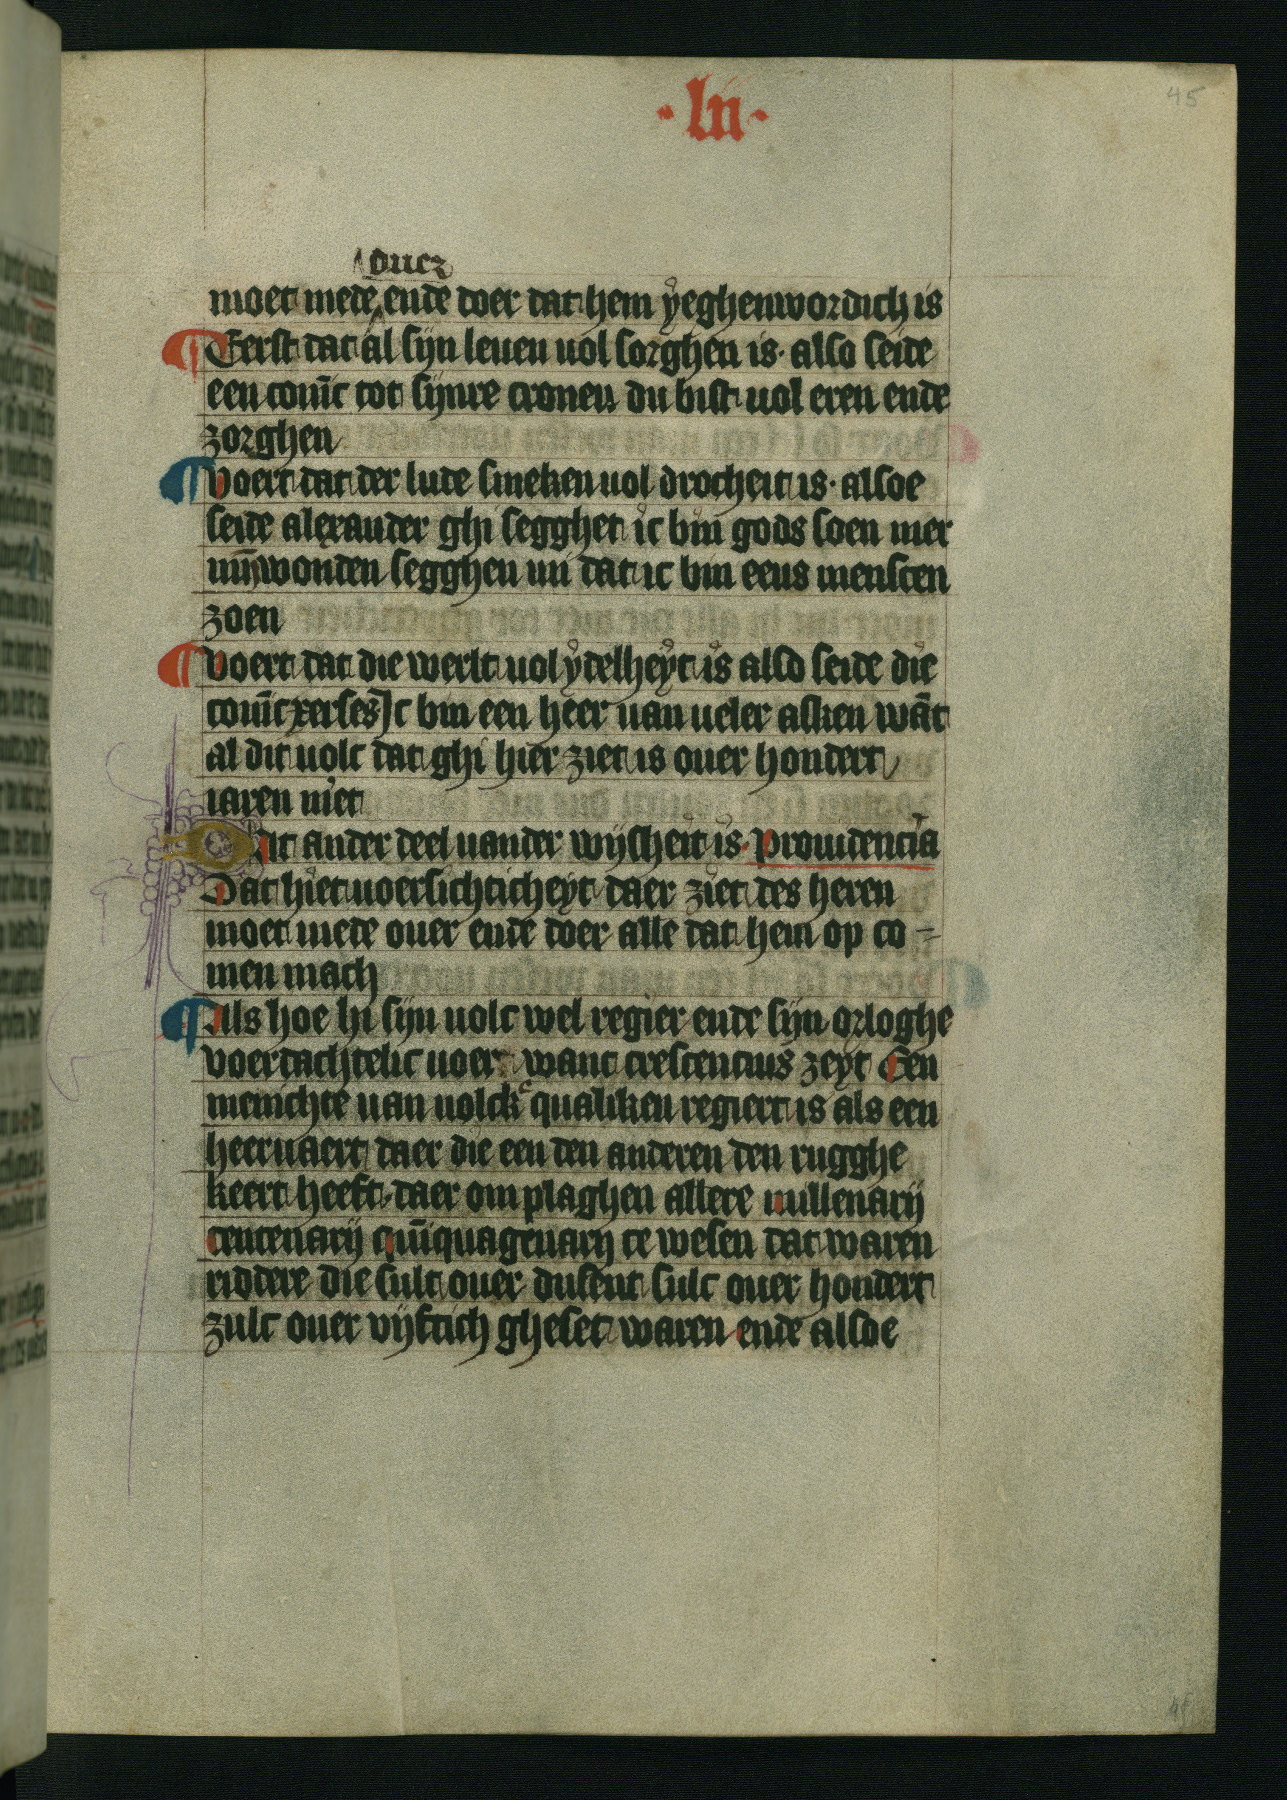 ·lii·
45
ouer
moet mede ende doer dat hem yeghenwordich is
¶ Eerst dat al sijn leuen uol sorghen is· also seide
een coninc tot sijnre cronen du bist uol eren ende
zorghen
¶ Voert dat der lude smeken uol drocheit is· alsoe
seide alexander ghi segghet ic bin gods soen mer
wonden segghen mi dat ic bin eens menscen
zoen
¶ Voert dat die werlt uol ydelheyt is also seide die
conīc xerses Ic bin een heer uan ueler assken wāt
al dit uolc dat ghi hier ziet is ouer hondert
iaren niet
Dat ander deel uander wijsheit is· prouidencia
Dat hiet uoersichticheyt daer ziet des heren
moet mede ouer ende doer alle dat hem op co =
men mach
¶ Als hoe hi sijn uolc wel regier ende sijn orloghe
voerdachtelic uoer want crescencius zeyt Een
menichte uan uolck qualiken regiert is als een
heeruaert daer die een den anderen den rugghe
keert heeft· daer om plaghen allere millenarij
centenarij quīquagenarij te wesen dat waren
riddere die sulc ouer dusent sulc ouer hondert
zulc ouer vijftich gheset waren ende alsoe